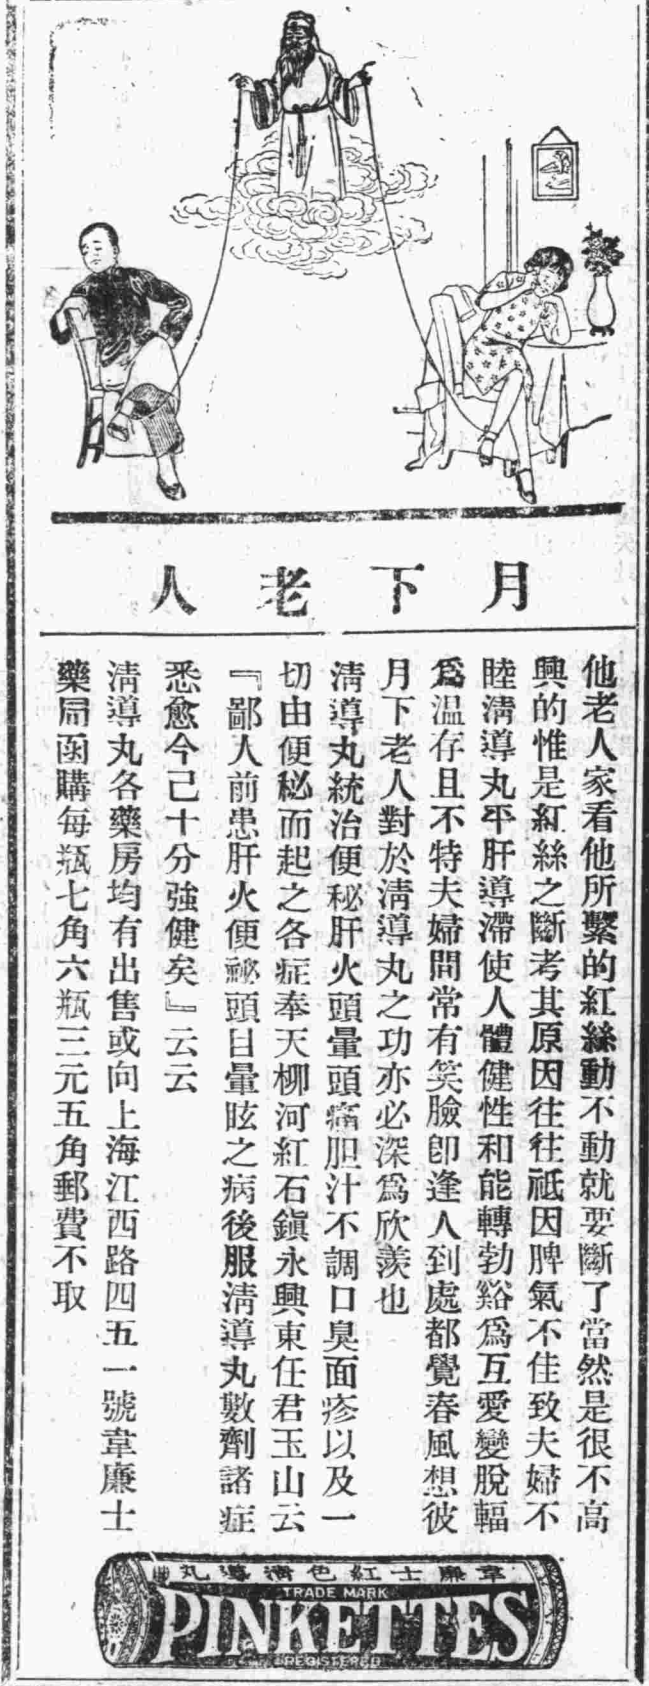 月下老人
他老人家看他所繫的紅絲動不動就要斷了當然是很不高
興的惟是紅絲之斷考其原因往往祇因脾氣不佳致夫婦不
睦淸導丸平肝導滯使人體健性和能轉勃谿爲互愛變脫輻
爲溫存且不特夫婦間常有笑臉卽逢人到處都覺春風想彼
月下老人對於淸導丸之功亦必深爲欣羨也
淸導丸統治便秘肝火頭暈頭痛胆汁不調口臭面疹以及一
切由便秘而起之各症奉天柳河紅石鎭永興東任君玉山云
『鄙人前患肝火便祕頭目暈眩之病後服淸導丸數劑諸症
悉愈今已十分強健矣』云云
淸導丸各藥房均有出售或向上海江西路四五一號韋廉士
藥局函購每瓶七角六瓶三元五角郵費不取
韋廉士紅色淸導丸
TRADE MARK
PINKETTES
REGISTERED